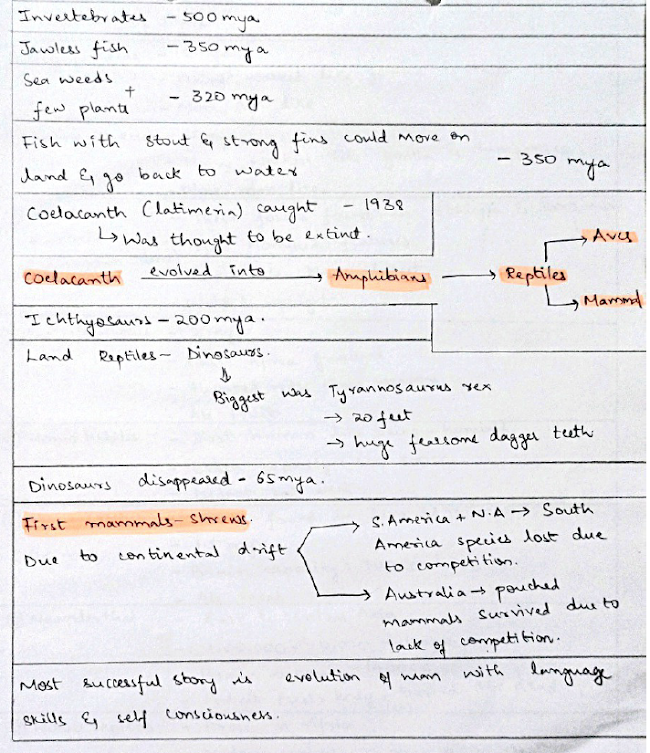 Invertebrates - 500 mya
Jawless fish - 350 mya
Sea weeds
+
few plants - 320 mya
Fish with stout & strong fins could move on
land & go back to water - 350 mya
Coelacanth (latimeria) caught - 1938
↳ Was thought to be extinct.
Coelacanth evolved into → Amphibians → Reptiles → Aves
→ Mammal
Ichthyosaurs - 200 mya.
Land Reptiles - Dinosaurs.
⇓
Biggest was Tyrannosaurus rex
→ 20 feet
→ huge fearsome dagger teeth
Dinosaurs disappeared - 65 mya.
First mammals - Shrews.
Due to continental drift
→ S. America + N.A → South
America species lost due
to competition.
→ Australia → pouched
mammals survived due to
lack of competition.
Most successful story is evolution of man with language
skills & self consciousness.